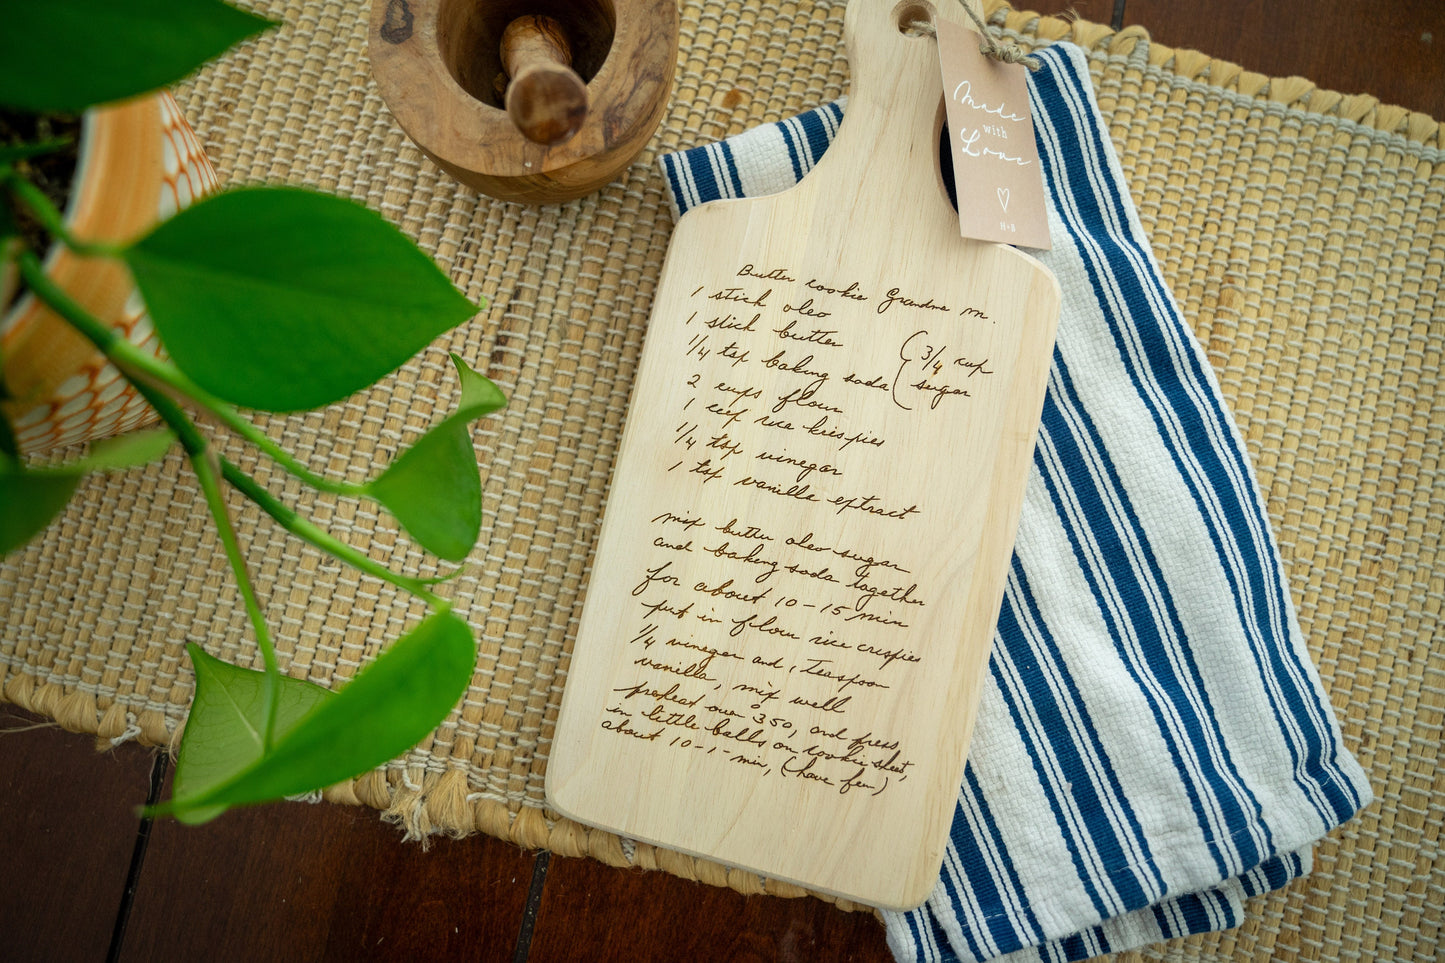 Made
with
Love
H+B
Butter cookie Grandma M.
1 stick oleo
1 stick butter
(3/4 cup
1/4 tsp baking soda (sugar
2 cups flour
1 cup rice krispies
1/4 tsp vinegar
1 tsp vanilla extract
mix butter oleo sugar
and baking soda together
for about 10-15 min
put in flour rice crispies
1/4 vinegar and 1 teaspoon
vanilla, mix well
preheat oven 350, and press
in little balls on cookie sheet,
about 10-1- min, (have fun)